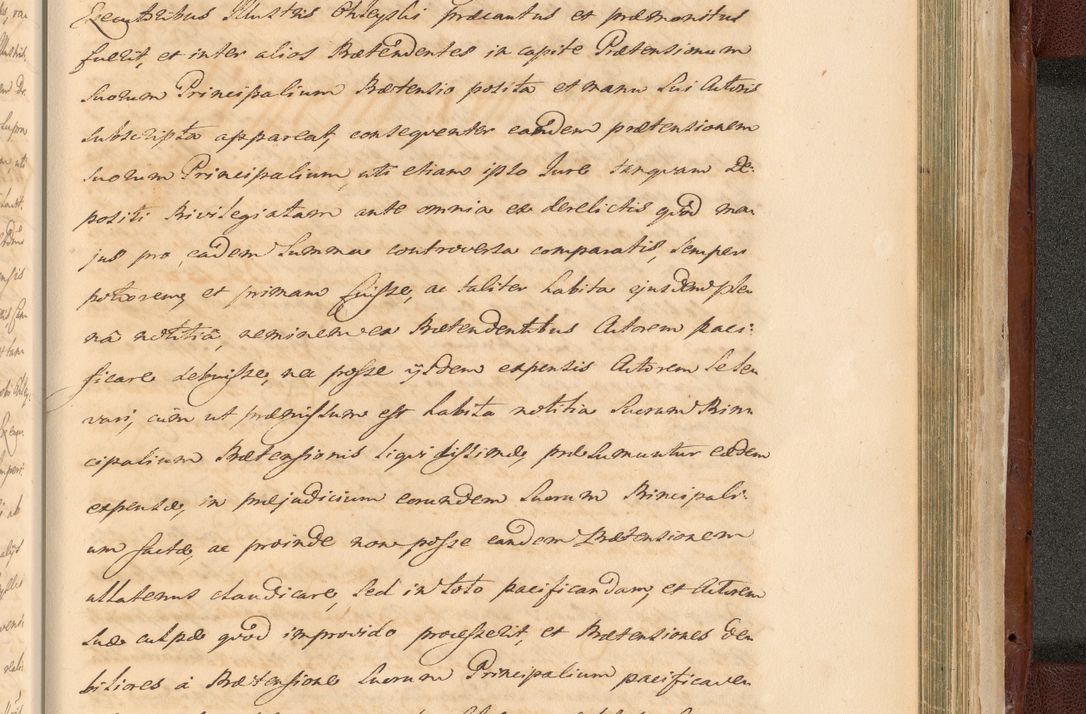 Executoribus Illustris Ohleyski præcautus et præmonitus
fuerit, et inter alios Prætendentes in capite Prætensionum
suorum Principalium Prætensio posita et manu sui Autoris
subscripta appareat, consequenter eandem prætensionem
suorum Principalium, uti etiam ipso Jure tanquam De¬
positi Privilegiatam ante omnia ex derelictis quod ma¬
jus pro eadem summa controversa comparatis, semper
potiorem, et primam fuisse, ac taliter habita ejusdem ple¬
nâ notitiâ, neminem ex Prætendentibus Autorem paci¬
ficare debuisse, nec posse iisdem expensis Autorem se le¬
vari, cum ut præmissum est habita notitia suorum Prin¬
cipalium Prætensionis liquidissimæ, præsumuntur eædem
expensæ, in præjudicium eorundem suorum Principali¬
um factæ, ac proinde non posse eandem Prætensionem
ullatenus claudicare, sed in toto pacificandam, et Autorem
suæ culpæ quod improvido processerit, et Prætensiones de¬
biliores à Prætensione suorum Principalium pacificaver